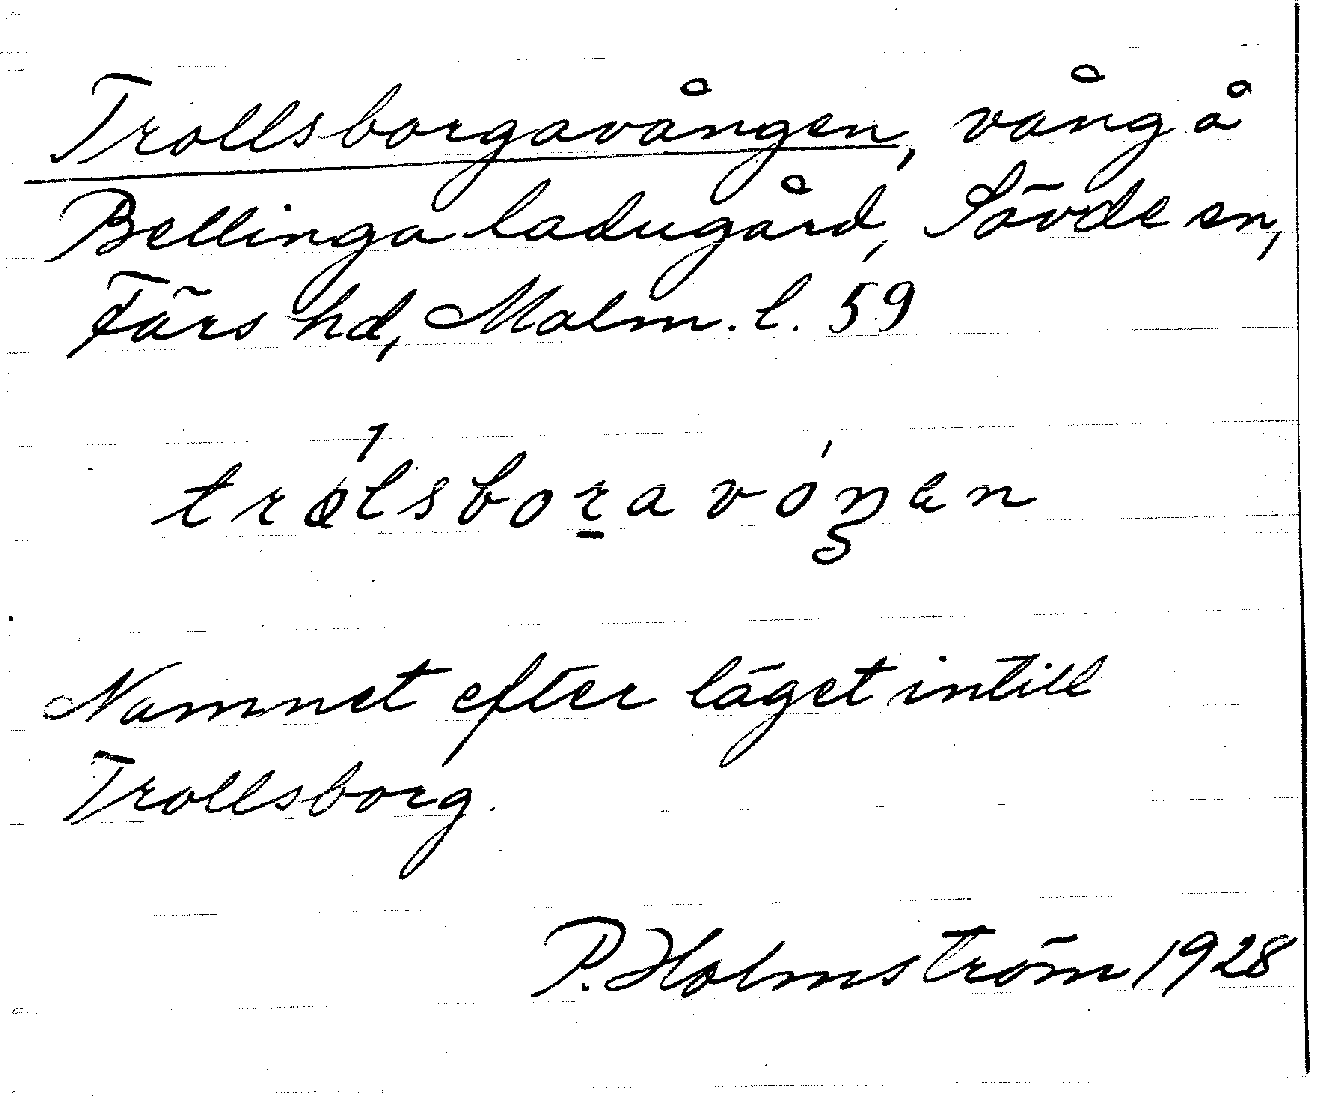 Trollsborgavången, vång å
Bellinga ladugård, Sövde sn,
Färs hd, Malm. l. 59
trólsboravóŋen
Namnet efter läget intill
Trollsborg.
P. Holmström 1928